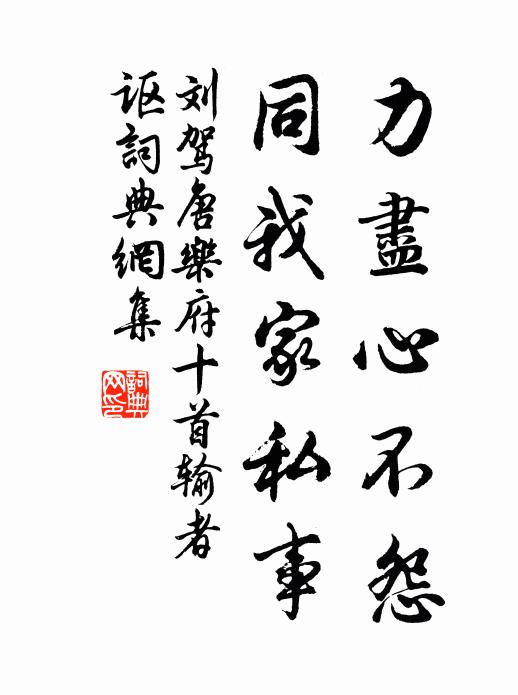 力盡心不怨
同我家私事
刘驾唐樂府十首输者
讴詞典網集
詞典网印